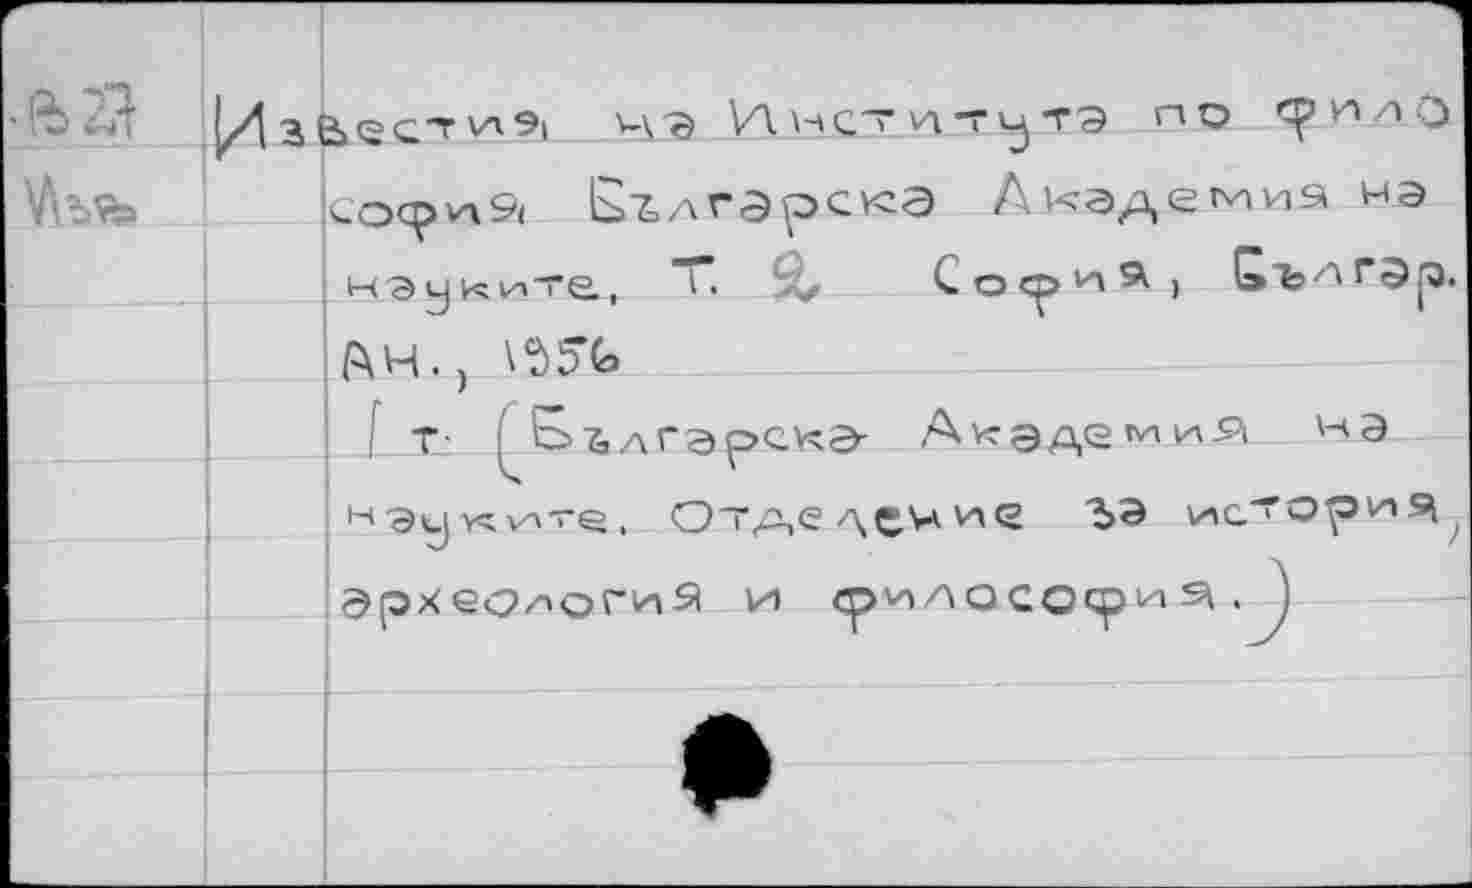 В27 Известия на Института по фило
Изв софия Българска Академия на
науките, Т. 2, София, Българ.
АН., 1956
1 т. (Българска Академия на
науките. Отделение за история,
археология и философия.)